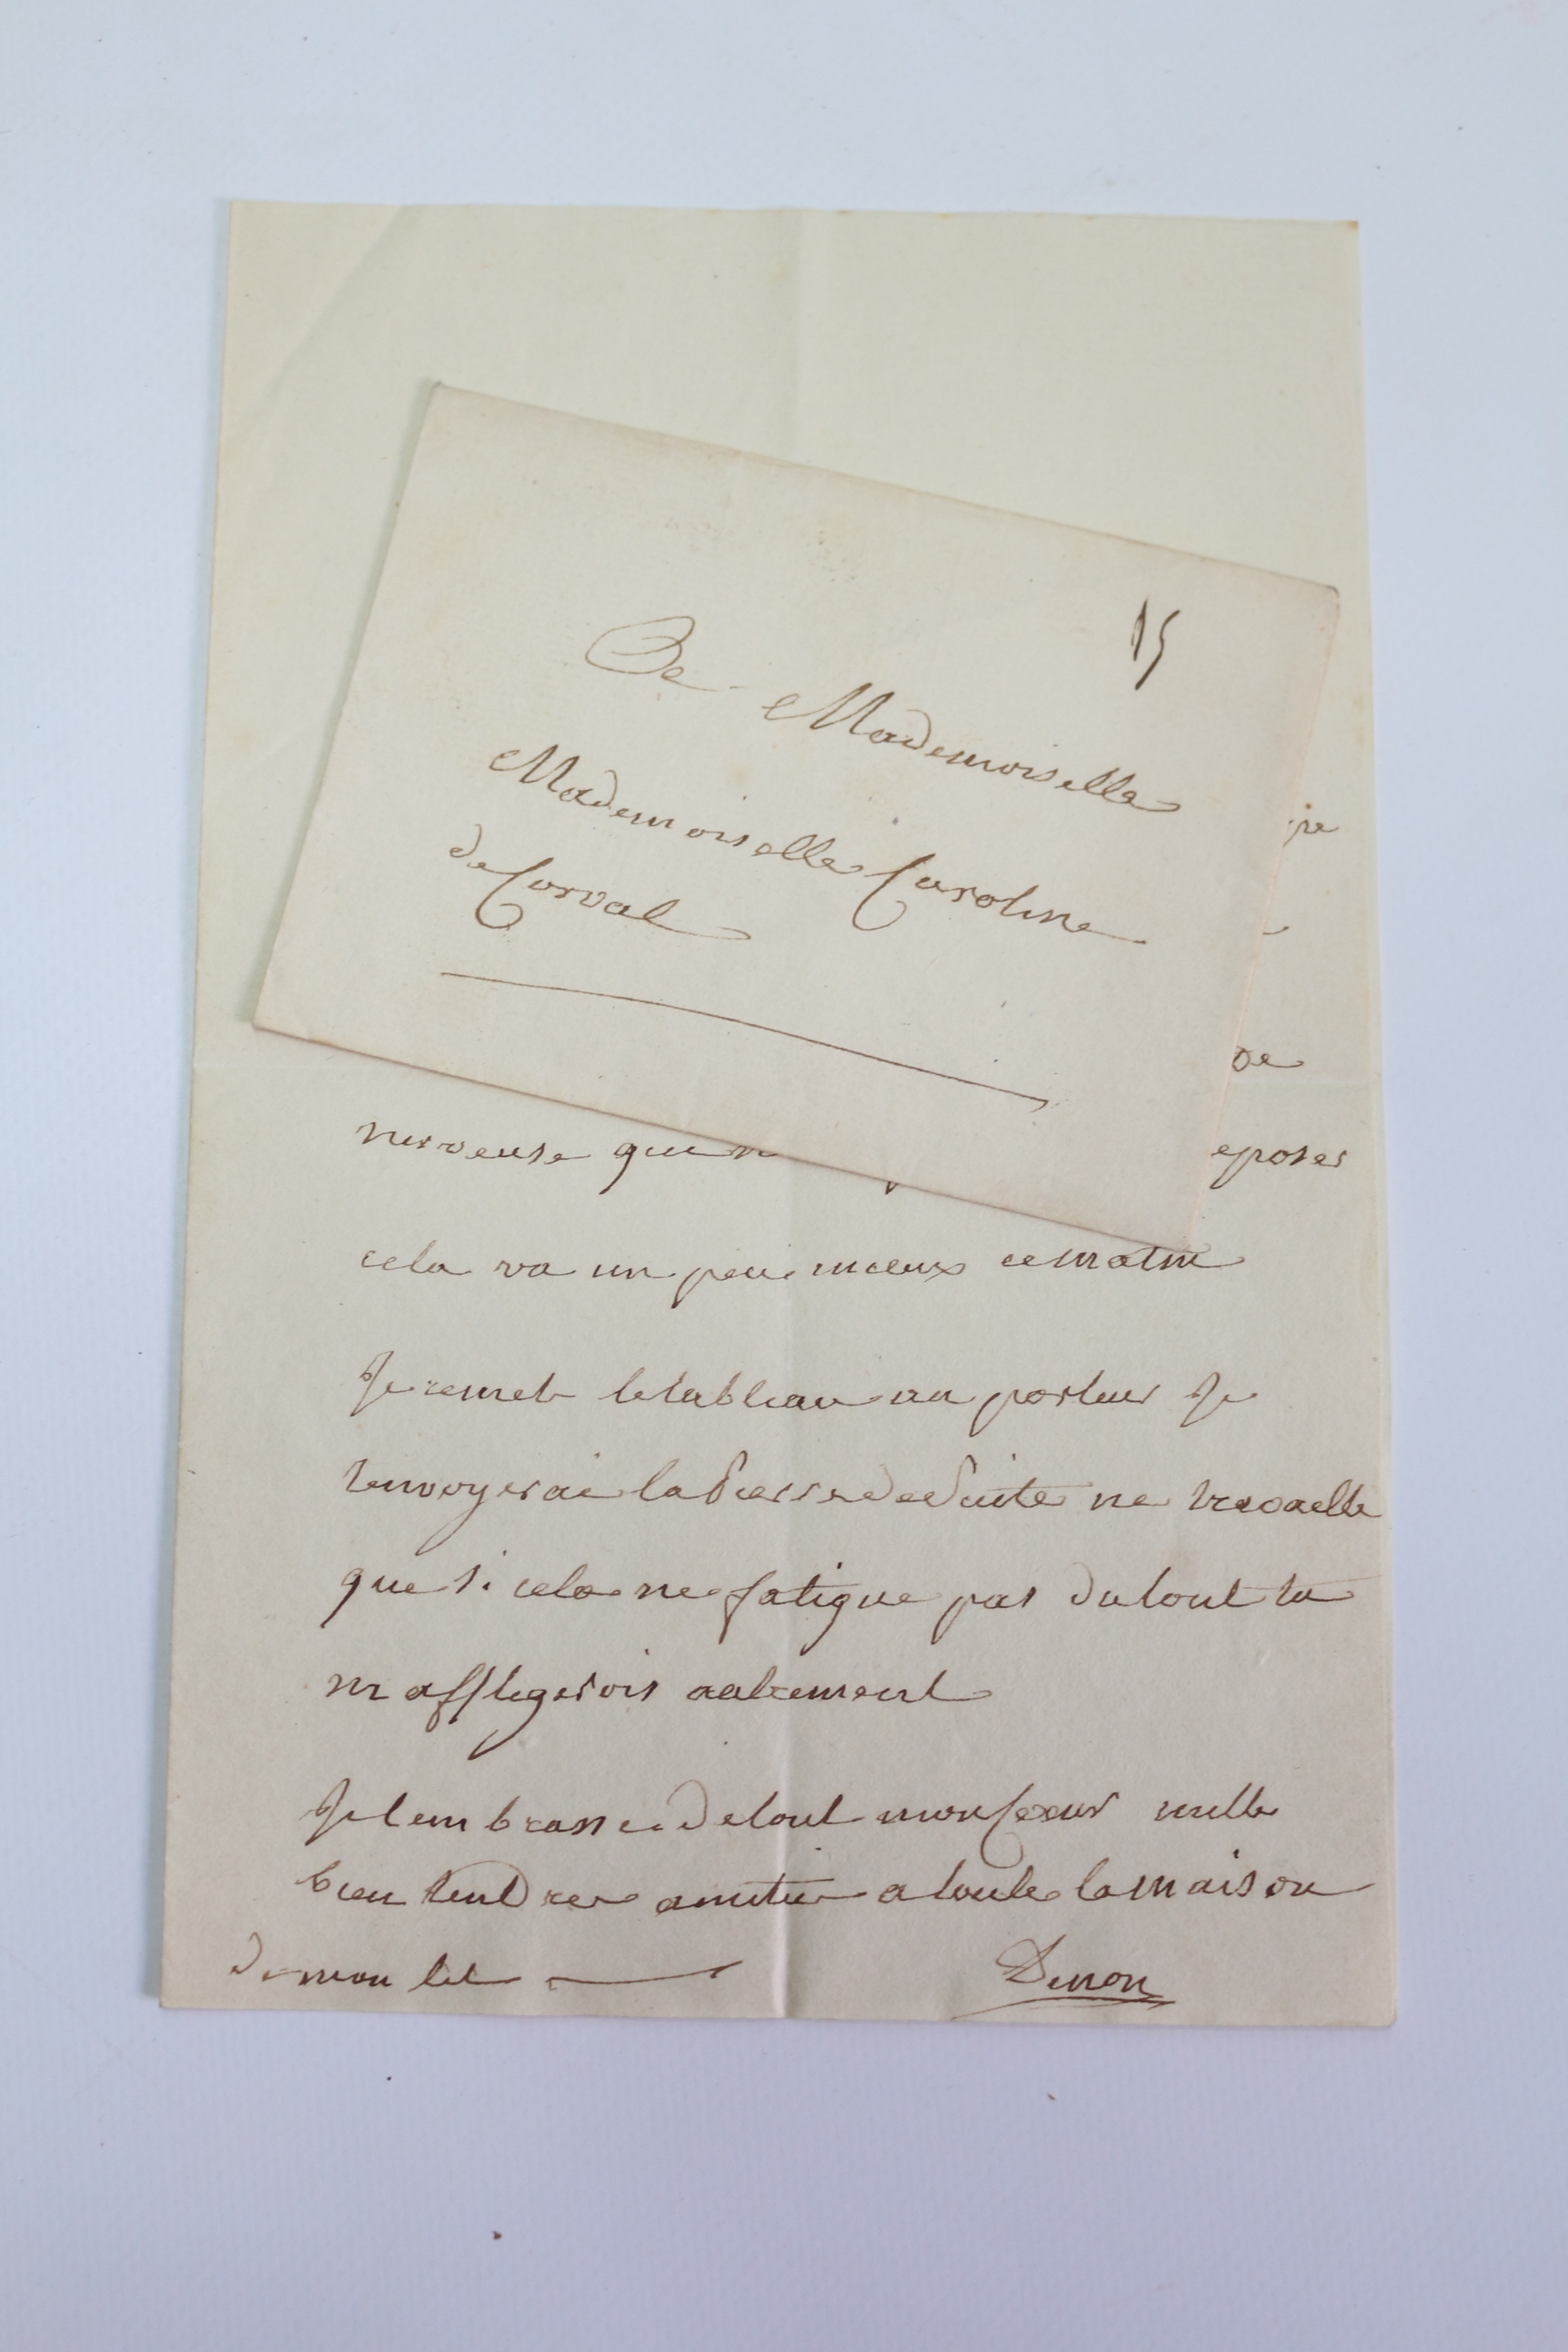 15
A Mademoiselle
Mademoiselle Caroline
de Corval
de
nerveuse que eposer
cela va un peu mieux ce matin
Je remet le tableau au porteur Je
tenvoyerai la Pierre de Suite ne travaille
que si cela ne fatigue pas du tout tu
m affligerois autrement
Je tembrasse de tout mon Coeur mille
bien tendres amitiés a toute la maison
de mon lit Denon